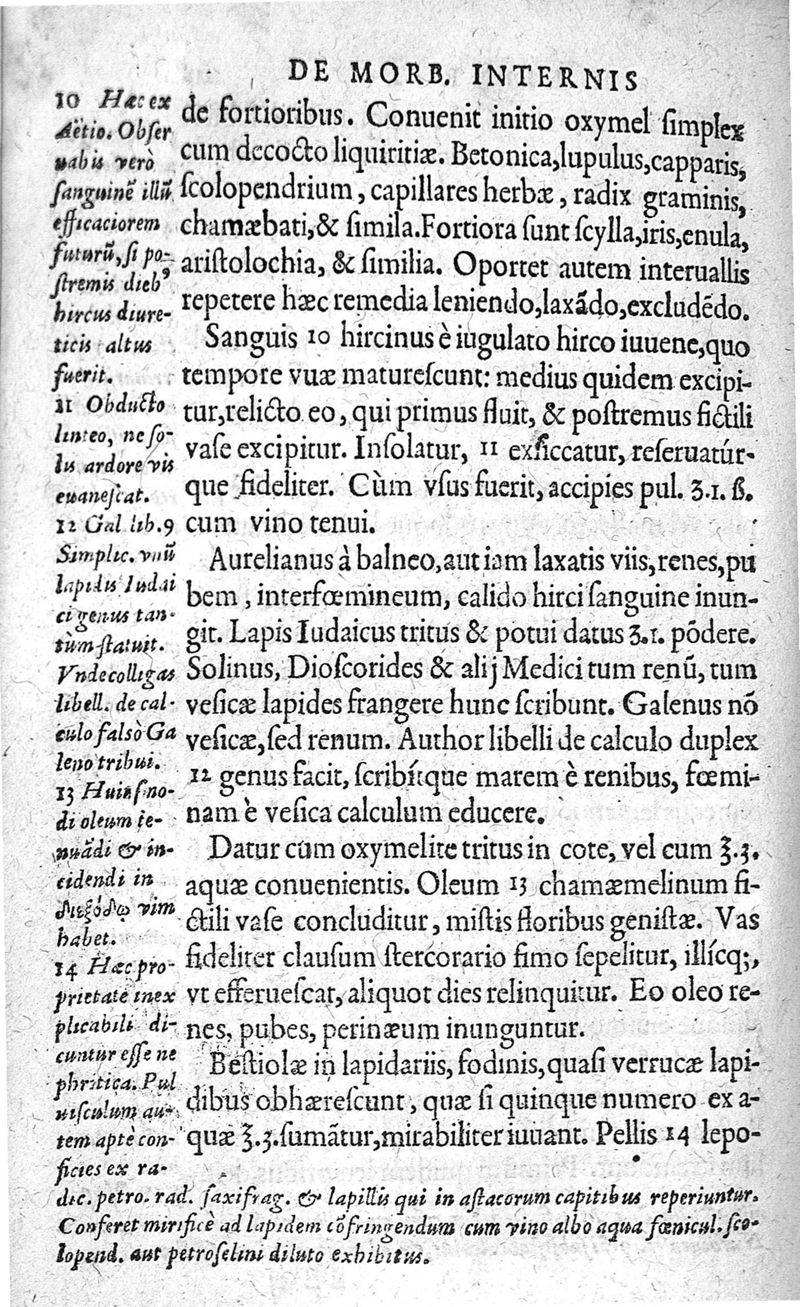 DE MORB. INTERNIS
de fortioribus. Conuenit initio oxymel ſimplex
cum decocto liquiritiæ. Betonica,lupulus,capparis,
ſcolopendrium, capillares herbæ, radix graminis,
chamæbati,& ſimila.Fortiora ſunt ſcylla,iris,enula,
ariſtolochia, & ſimilia. Oportet autem interuallis
repetere hæc remedia leniendo,laxãdo,excludẽdo.
Sanguis 10 hircinus è iugulato hirco iuuene,quo
tempore vuæ matureſcunt: medius quidem excipi-
tur,relicto eo, qui primus fluit, & poſtremus fictili
vaſe excipitur. Inſolatur, 11 exſiccatur, reſeruatúr-
que fideliter. Cùm vſus fuerit, accipies pul. ʒ.1. ß.
cum vino tenui.
Aurelianus à balneo,aut iam laxatis viis,renes,pu
bem, interfœmineum, calido hirci ſanguine inun-
git. Lapis Iudaicus tritus & potui datus ʒ.1. põdere.
Solinus, Dioſcorides & alij Medici tum renũ, tum
veſicæ lapides frangere hunc ſcribunt. Galenus nõ
veſicæ,ſed renum. Author libelli de calculo duplex
12 genus facit, ſcribítque marem è renibus, fœmi-
nam è veſica calculum educere.
Datur cum oxymelite tritus in cote, vel cum ℥.3.
aquæ conuenientis. Oleum 13 chamæmelinum fi-
ctili vaſe concluditur, miſtis floribus geniſtæ. Vas
fideliter clauſum ſtercorario fimo ſepelitur, illícq;,
vt efferueſcat, aliquot dies relinquitur. Eo oleo re-
nes, pubes, perinæum inunguntur.
Beſtiolæ in lapidariis, fodinis,quaſi verrucæ lapi-
dibus obhæreſcunt, quæ ſi quinque numero ex a-
quæ ℥.3.ſumãtur,mirabiliter iuuant. Pellis 14 lepo-
10 Hæc ex
Aëtio. Obſer
uabis verò
ſanguinẽ illũ
efficaciorem
futurũ, ſi po-
ſtremis dieb⁹
hircus diure-
ticis altus
fuerit.
11 Obducto
linteo, ne ſo-
lis ardore vis
euaneſcat.
12 Gal lib.9
Simplic. vnũ
lapidis Iudai
ci genus tan-
tùm ſtatuit.
Vnde colligas
libell. de cal-
culo falsò Ga
leno tribui.
13 Huiuſmo-
di oleum te-
nuãdi & in-
cidendi in
vim
habet.
14 Hæc pro-
prietate inex
plicabili di-
cuntur eſſe ne
phritica. Pul
uiſculum au-
tem aptè con-
ficies ex ra-
dic. petro. rad. ſaxifrag. & lapillis qui in aſtacorum capitibus reperiuntur.
Conferet mirificè ad lapidem cõfringendum cum vino albo aqua fœnicul. ſco-
lopend. aut petroſelini diluto exhibitus.